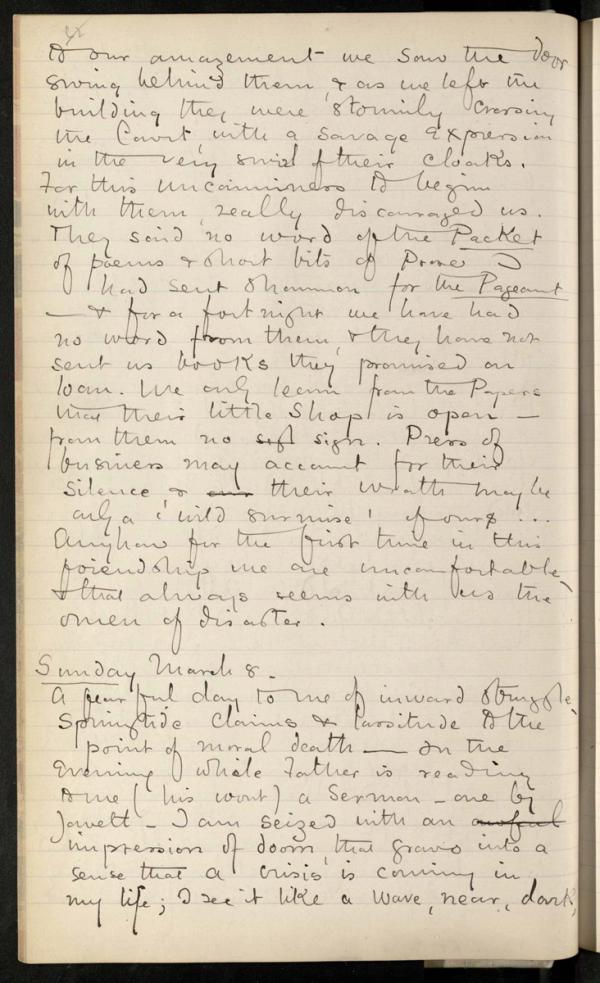 to our amazement we saw the door
swing behind them, & as we left the
building they were stormily crossing
the Court, with a savage expression
in the very swirl of their cloaks.
For this uncanniness to begin
with them, really discouraged us.
They said no word of the Packet
of poems & short bits of Prose I
had sent Shannon for the Pageant
— & for a fortnight we have had
no word from them, & they have not
sent us books they promised on
loan. We only learn from the Papers
that their little Shop is open —
from them no sign. Press of
business may account for their
silence, & their wrath may be
only a 'wild surmise' of ours ...
Anyhow for the first time in this
friendship we are uncomfortable,
& that always seems with us the
omen of disaster.
Sunday March 8.
A fearful day to me of inward struggle,
Springtide claims & lassitude to the
point of moral death — In the
Evening while Father is reading
to me (his wont) a Sermon — one by
Jowett — I am seized with an awful
impression of doom, that grows into a
sense that a crisis is coming in
my life; I see it like a wave, near, dark,